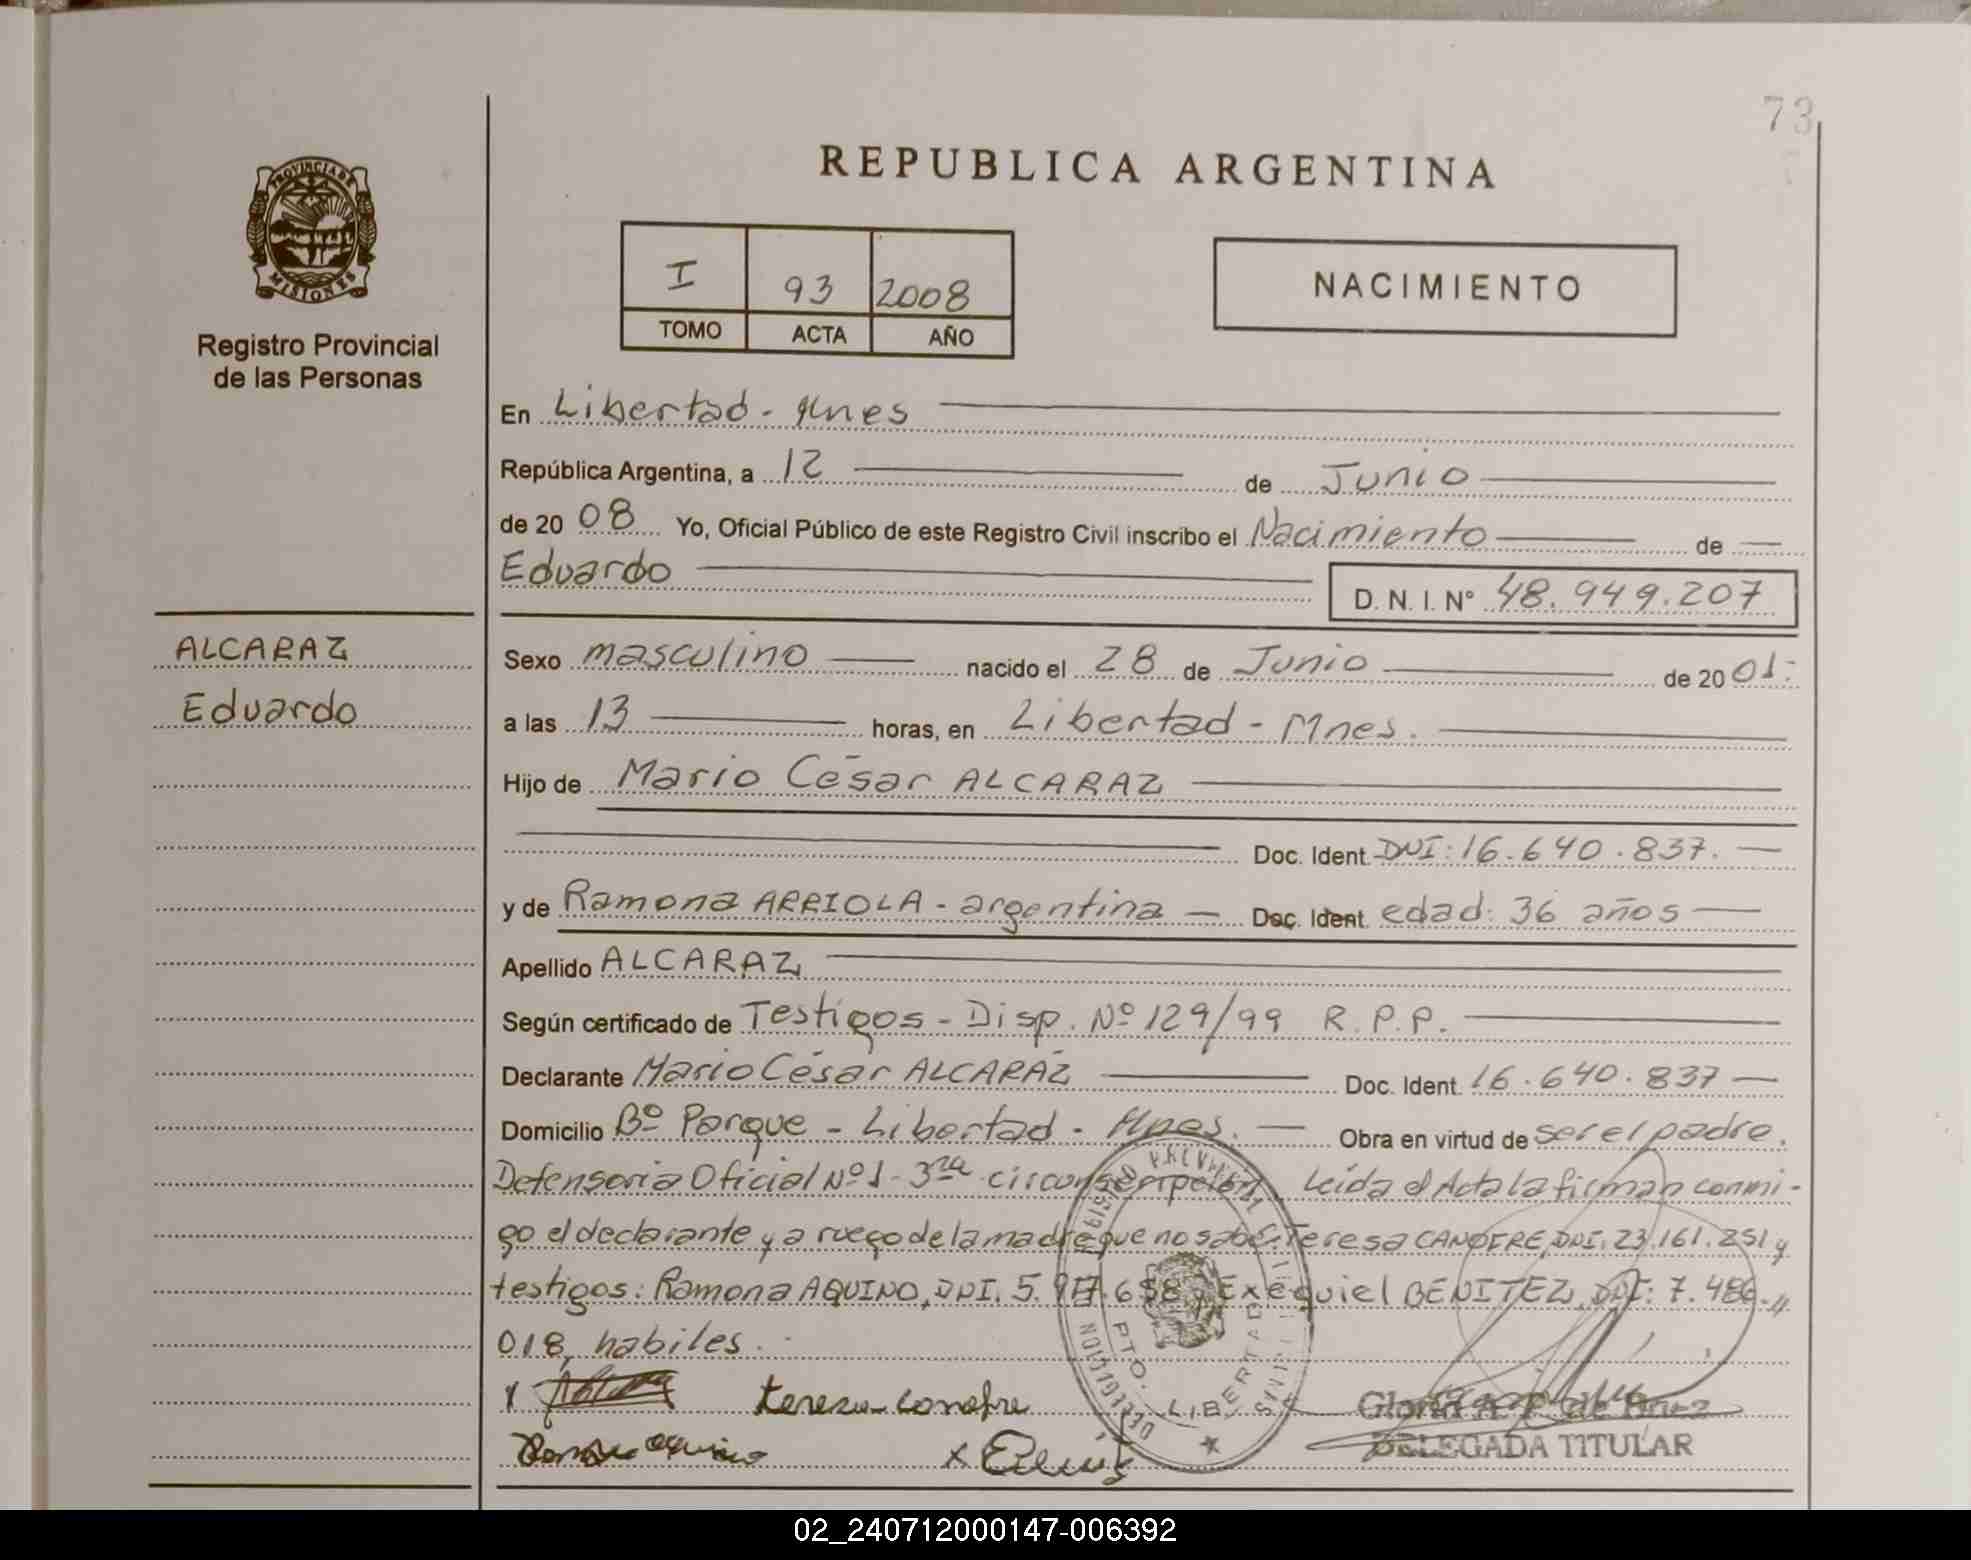 73
PROVINCIA DE
MISIONES
Registro Provincial
de las Personas
REPUBLICA ARGENTINA
I 93 2008
TOMO ACTA AÑO
NACIMIENTO
En Libertad - Mnes
República Argentina, a 12 de Junio
de 20 08 Yo, Oficial Público de este Registro Civil inscribo el Nacimiento de
Eduardo
D. N. I. N° 48.949.207
ALCARAZ
Eduardo
Sexo masculino nacido el 28 de Junio de 20 01.
a las 13 horas, en Libertad - Mnes.
Hijo de Mario César ALCARAZ
Doc. Ident. DNI: 16.640.837.
y de Ramona ARRIOLA - argentina Doc. Ident. edad: 36 años
Apellido ALCARAZ
Según certificado de Testigos - Disp. Nº 129/99 R.P.P.
Declarante Mario César ALCARAZ Doc. Ident. 16.640.837
Domicilio Bº Parque - Libertad - Mnes. Obra en virtud de ser el padre.
Defensoria Oficial Nº 1 - 3ra circunscripción Leída el Acta la firman conmi-
go el declarante y a ruego de la madre que no sabe: Teresa CANOFRE, DNI. 23.161.251 y
testigos: Ramona AQUINO, DNI. 5. Exequiel BENITEZ, DNI: 7.486.
018, habiles.
x teresa conofre
Aquino x
PTO. LIBERTAD
Gloria A. de
DELEGADA TITULAR
02_240712000147-006392